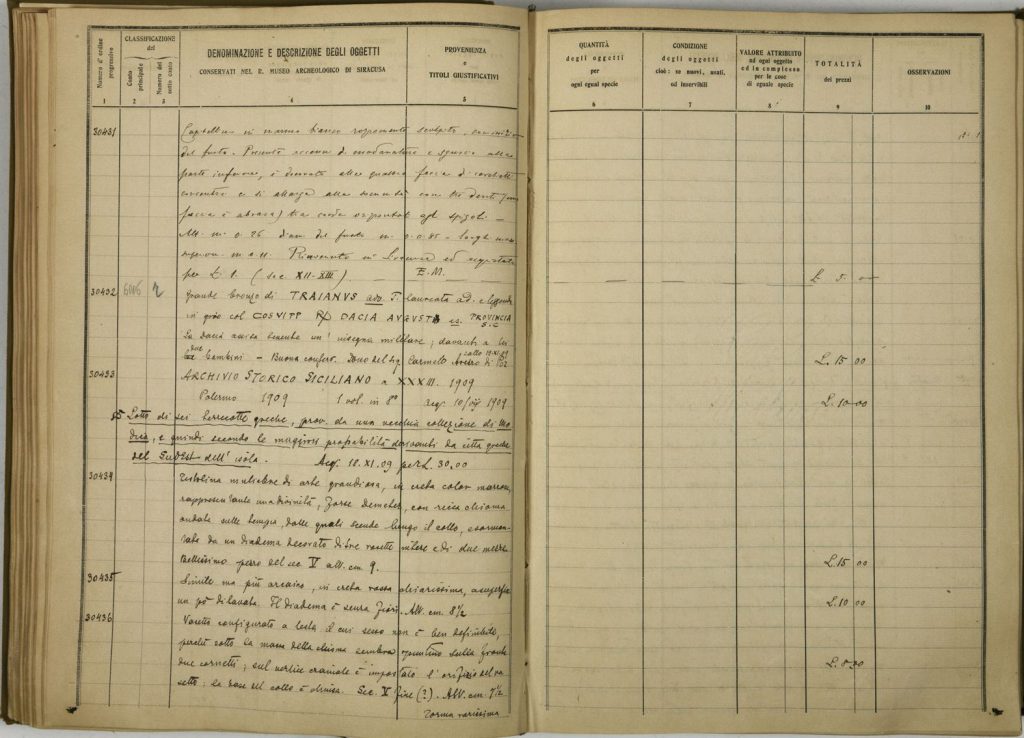 Numero d'ordine progressivo
CLASSIFICAZIONE
del
Conto principale
Numero del sotto conto
DENOMINAZIONE E DESCRIZIONE DEGLI OGGETTI
CONSERVATI NEL R. MUSEO ARCHEOLOGICO DI SIRACUSA
PROVENIENZA
o
TITOLI GIUSTIFICATIVI
1 2 3 4 5
30431 in marmo bianco rozzamente scolpito,
del fusto. Presenta e sguscio alla
parte inferiore, è decorato alle quattro facce di
e si allarga alla sommità con tre denti (una
faccia è abrasa) tra agli spigoli —
Alt. m. 0.26 diam. del fusto m.
superiore m. Rinvenuto in ed acquistato
per L. 1. (sec XII-XIII) E.M.
30432 6006 2 Grande bronzo di TRAIANVS T. laureata ad. e leggenda
in giro col COSVIPP DACIA AVGVST PROVINCIA
S.C
La Dacia assisa tenente un' insegna militare; davanti a lei
due bambini — Buona conserv. Dono del Sig Carmelo
30433 ARCHIVIO STORICO SICILIANO a XXXIII. 1909
Palermo 1909 1 vol. in 8º 10/VII 1909
Lotto di sei terrecotte greche, prov. da una vecchia collezione di Mo
dica, e quindi secondo le maggiori probabilità derivanti da città greche
del SudEst dell' isola. Acq. 18.XI.09 per L. 30.00
30434 Testolina muliebre di arte grandiosa, in creta color marrone,
rappresentante una divinità, forse Demeter, con ricca chioma
ondata sulle tempia, dalle quali scende lungo il collo, sormon-
tata da un diadema decorato di tre rosette intere e di due mezze.
Bellissimo pezzo del sec V alt. cm 9.
30435 Simile ma più arcaico, in creta rossa chiarissima, a superficie
un pò dilavata. Il diadema è senza fiori. Alt. cm. 8½
30436 Vasetto configurato a testa il cui sesso non è ben definibile,
perchè sotto la massa della chioma sembra spuntino sulla fronte
due cornetti; sul vertice craniale è impostato l'orifizio del va
setto: la base del collo è chiusa. Sec. V fine (?). Alt. cm. 7½
Forma rarissima
QUANTITÀ
degli oggetti
per
ogni egual specie
CONDIZIONE
degli oggetti
cioè: se nuovi, usati,
od inservibili
VALORE ATTRIBUITO
ad ogni oggetto
ed in complesso
per le cose
di eguale specie
TOTALITÀ
dei prezzi
OSSERVAZIONI
6 7 8 9 10
L. 5 00
L. 15 00
L. 10 00
L. 15 00
L. 10 00
L. 8 00